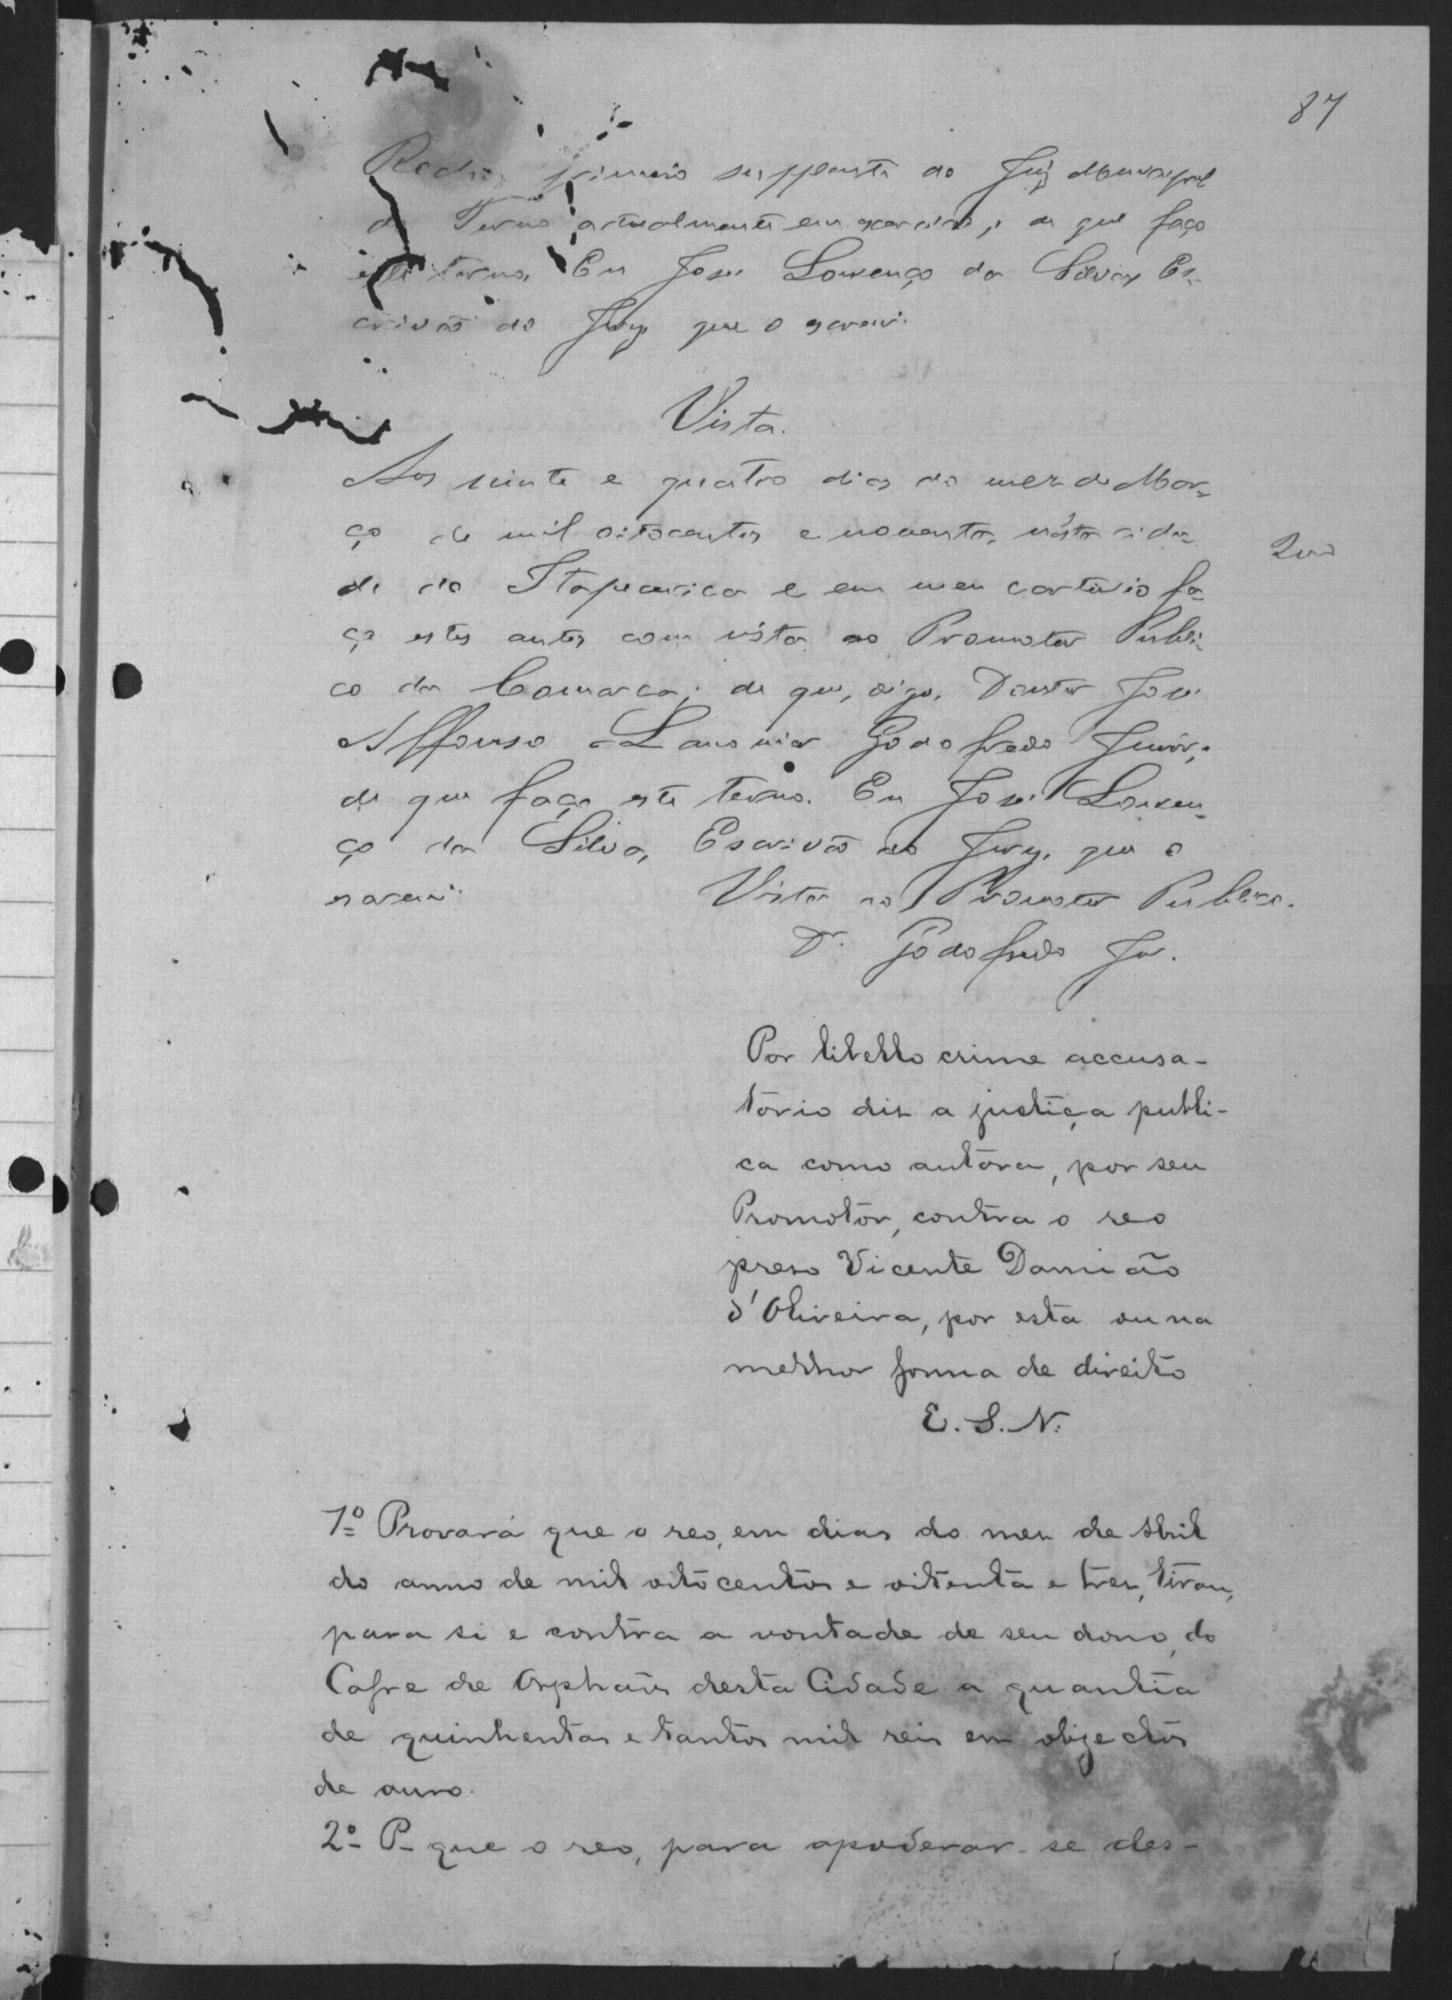 87
primeiro supplente do Juiz Municipal
do Termo actualmente em exercicio; de que faço
este termo. Eu José Lourenço da Silva, Es-
crivão do Jury que o escrevi.
Vista.
Aos vinte e quatro dias do mez de Mar-
ço de mil oitocentos e noventa, nésta cida-
de de Itapecerica e em meu cartório fa-
ço estes autos com vista ao Promotor Publi-
co da Comarca; de que, digo, Doutor José
Affonso Lamounier Godofredo Junior;
de que faço este termo. Eu José Louren-
ço da Silva, Escrivão do Jury, que o
escrevi.
Vista ao Promotor Publico.
Dr. Godofredo Jor.
Por libello crime accusa-
tório diz a justiça publi-
ca como autôra, por seu
Promotôr, contra o reo
preso Vicente Damião
d'Oliveira, por esta ou na
melhor forma de direito
E. S. N.
1º Provará que o reo, em dias do mez de Abril
do anno de mil oitocentos e oitenta e trez, tirou,
para si e contra a vontade de seu dono, do
Cofre de Orphãos desta Cidade a quantia
de quinhentos e tantos mil reis em objectos
de ouro.
2º P. que o reo, para apoderar-se des-